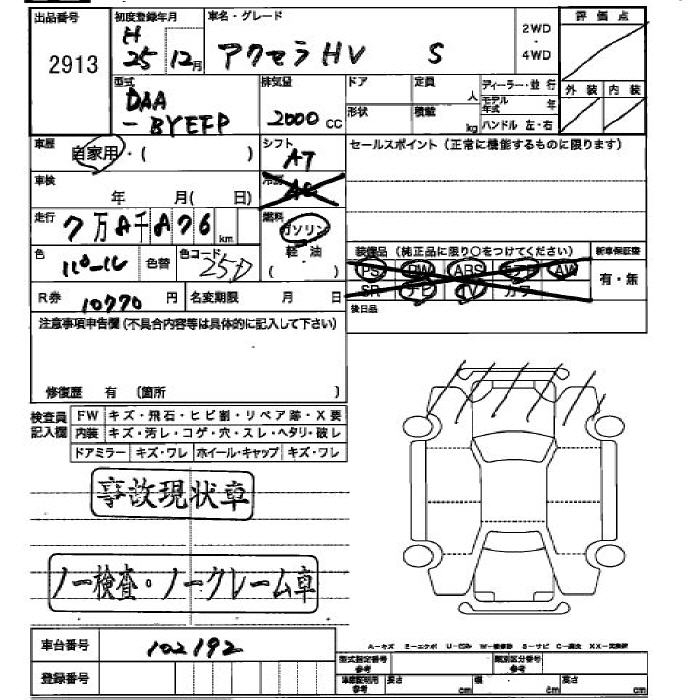 出品番号 初度登録年月 車名・グレード 評価点
2913 H 25 12月 アクセラHV S 2WD・4WD
外装 内装
型式 排気量 ドア 定員 人 ディーラー・並行
DAA-BYEFP 2000cc 形状 積載 kg モデル年式 年
ハンドル 左・右
車歴 自家用・( ) シフト AT セールスポイント(正常に機能するものに限ります)
車検 年 月(日) 冷房 AC
走行 7万8千876km 燃料 ガソリン 軽・油 装備品(純正品に限り○をつけてください) 新車保証書
色 パール 色替 色コード 25D ( ) PS PW ABS エアB AW 有・無
R券 10770円 名変期限 月 日 SR ナビ TV カワ
後日品
注意事項申告欄(不具合内容等は具体的に記入して下さい)
修復歴 有 〔箇所 〕
検査員記入欄 FW キズ・飛石・ヒビ割・リペア跡・X要
内装 キズ・汚レ・コゲ・穴・スレ・ヘタリ・破レ
ドアミラー キズ・ワレ ホイール・キャップ キズ・ワレ
事故現状車
ノー検査・ノークレーム車
車台番号 102192
A-キズ E-エクボ U-凹み W-補修跡 S-サビ C-腐食 XX-交換済
登録番号 型式指定番号参考 類別区分番号参考
車庫証明用参考 長さ cm 幅 cm 高さ cm